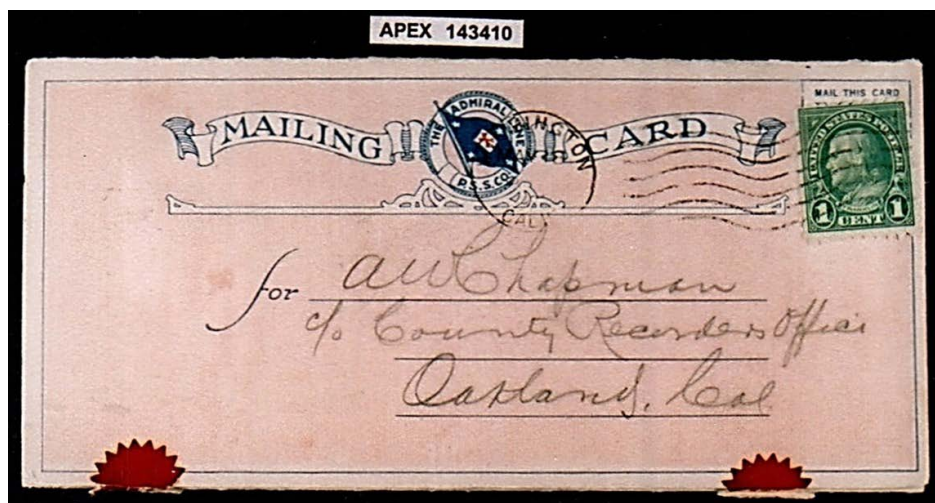 APEX 143410
MAIL THIS CARD
MAILING CARD
THE ADMIRAL LINE
P.S.S.CO.
INGTON
CAL
UNITED STATES POSTAGE
1 CENT 1
for A W Chapman
c/o County Recorders Office
Oakland, Cal